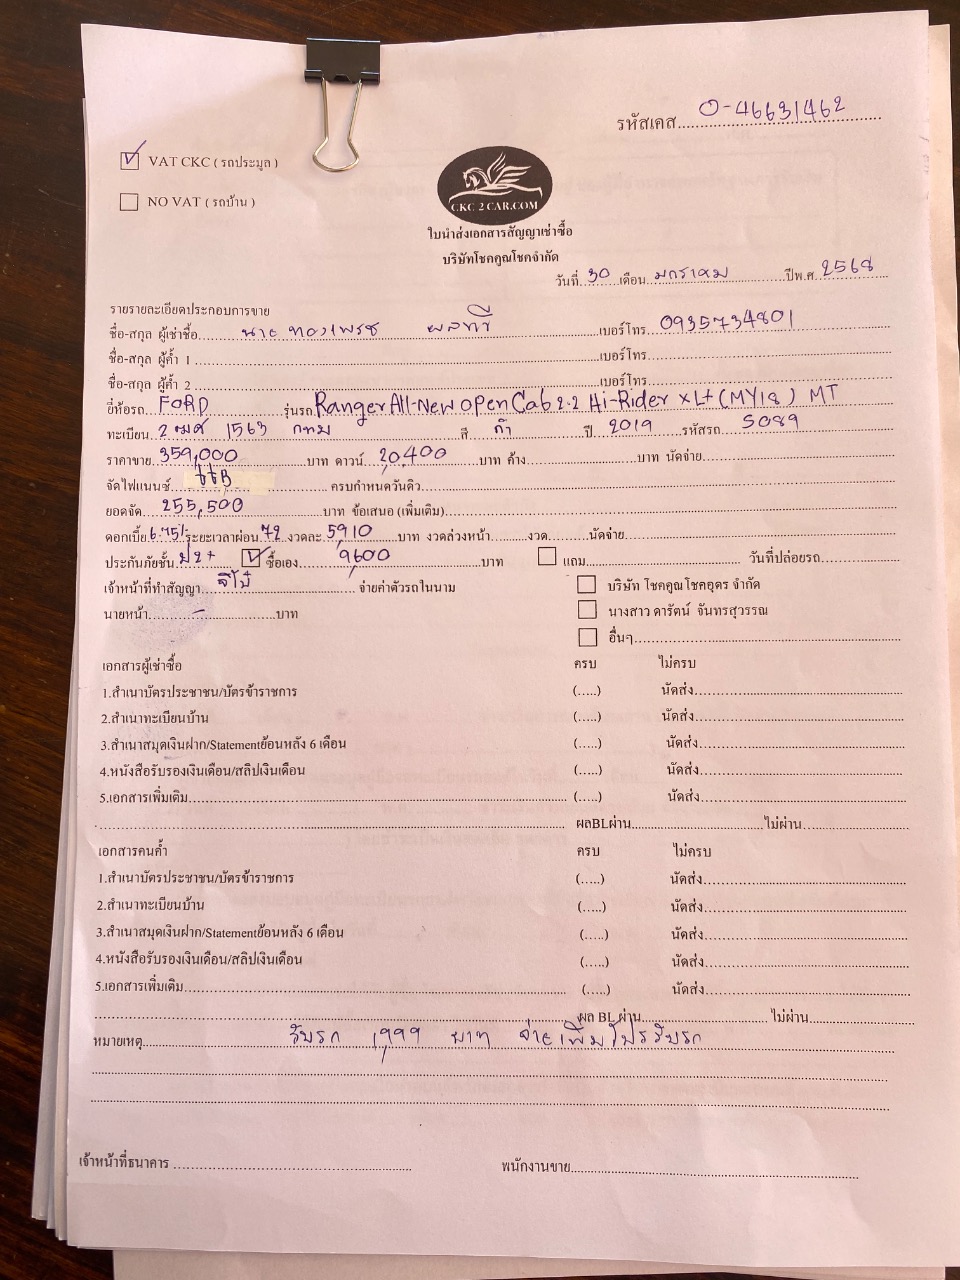 รหัสเคส..........O-46631462
☑ VAT CKC ( รถประมูล )
☐ NO VAT ( รถบ้าน )
CKC 2 CAR.COM
ใบนำส่งเอกสารสัญญาเช่าซื้อ
บริษัทโชคคูณโชคจำกัด
วันที่ 30 เดือน มกราคม ปีพ.ศ. 2568
รายรายละเอียดประกอบการขาย
ชื่อ-สกุล ผู้เช่าซื้อ นาย ทองเพชร ผลทวี เบอร์โทร 0935734801
ชื่อ-สกุล ผู้ค้ำ 1 เบอร์โทร
ชื่อ-สกุล ผู้ค้ำ 2 เบอร์โทร
ยี่ห้อรถ FORD รุ่นรถ Ranger All-New open Cab 2.2 Hi-Rider XL+ (MY18) MT
ทะเบียน 2ฒศ 1563 กทม สี ดำ ปี 2019 รหัสรถ 5089
ราคาขาย 359,000 บาท ดาวน์ 20,400 บาท ค้าง บาท นัดจ่าย
จัดไฟแนนซ์ ttB ครบกำหนดวันดิว
ยอดจัด 255,500 บาท ข้อเสนอ (เพิ่มเติม)
ดอกเบี้ย 6.75% ระยะเวลาผ่อน 72 งวดละ 5,910 บาท งวดล่วงหน้า งวด นัดจ่าย
ประกันภัยชั้น ป2+ ☑ ซื้อเอง 9,600 บาท ☐ แถม วันที่ปล่อยรถ
เจ้าหน้าที่ทำสัญญา จีโบ้ จ่ายค่าตัวรถในนาม ☐ บริษัท โชคคูณโชคอุดร จำกัด
นายหน้า - บาท ☐ นางสาว ดารัตน์ จันทรสุวรรณ
☐ อื่นๆ
เอกสารผู้เช่าซื้อ ครบ ไม่ครบ
1.สำเนาบัตรประชาชน/บัตรข้าราชการ (.....) นัดส่ง
2.สำเนาทะเบียนบ้าน (.....) นัดส่ง
3.สำเนาสมุดเงินฝาก/Statementย้อนหลัง 6 เดือน (.....) นัดส่ง
4.หนังสือรับรองเงินเดือน/สลิปเงินเดือน (.....) นัดส่ง
5.เอกสารเพิ่มเติม (.....) นัดส่ง
ผลBLผ่าน ไม่ผ่าน
เอกสารคนค้ำ ครบ ไม่ครบ
1.สำเนาบัตรประชาชน/บัตรข้าราชการ (.....) นัดส่ง
2.สำเนาทะเบียนบ้าน (.....) นัดส่ง
3.สำเนาสมุดเงินฝาก/Statementย้อนหลัง 6 เดือน (.....) นัดส่ง
4.หนังสือรับรองเงินเดือน/สลิปเงินเดือน (.....) นัดส่ง
5.เอกสารเพิ่มเติม (.....) นัดส่ง
ผล BL ผ่าน ไม่ผ่าน
หมายเหตุ รับรถ 1,999 บาท จ่ายเพิ่มโปรรับรถ
เจ้าหน้าที่ธนาคาร พนักงานขาย